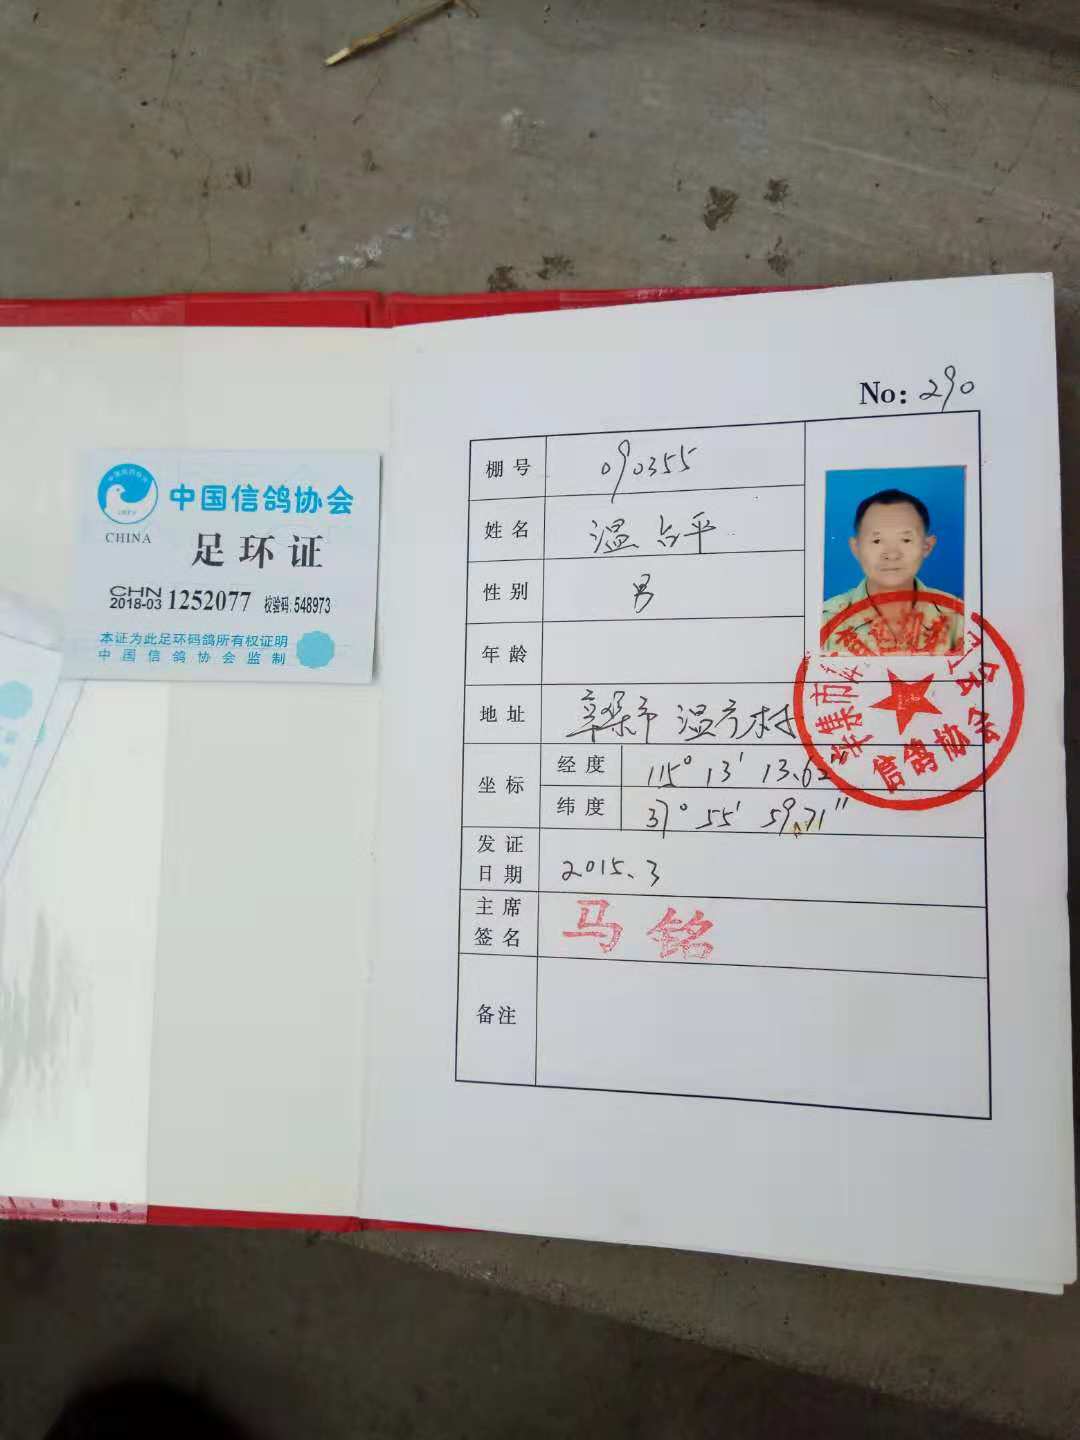 中国信鸽协会
CHINA
足环证
CHN
2018-03 1252077 校验码: 548973
本证为此足环码鸽所有权证明
中国信鸽协会监制
No: 290
棚号 090355
姓名 温占平
性别 男
年龄
地址 辛集市 温方村
坐标 经度 115° 13′ 13.62″
纬度 37° 55′ 59.71″
发证日期 2015.3
主席签名 马铭
备注
辛集市
信鸽协会